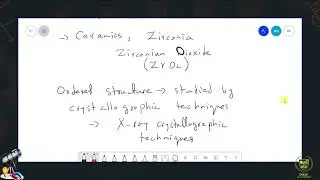 → Ceramics, Zirconia
Zirconium Dioxide
(ZrO₂)
Ordered structure → studied by
crystallographic techniques
→ X-ray crystallographic
techniques